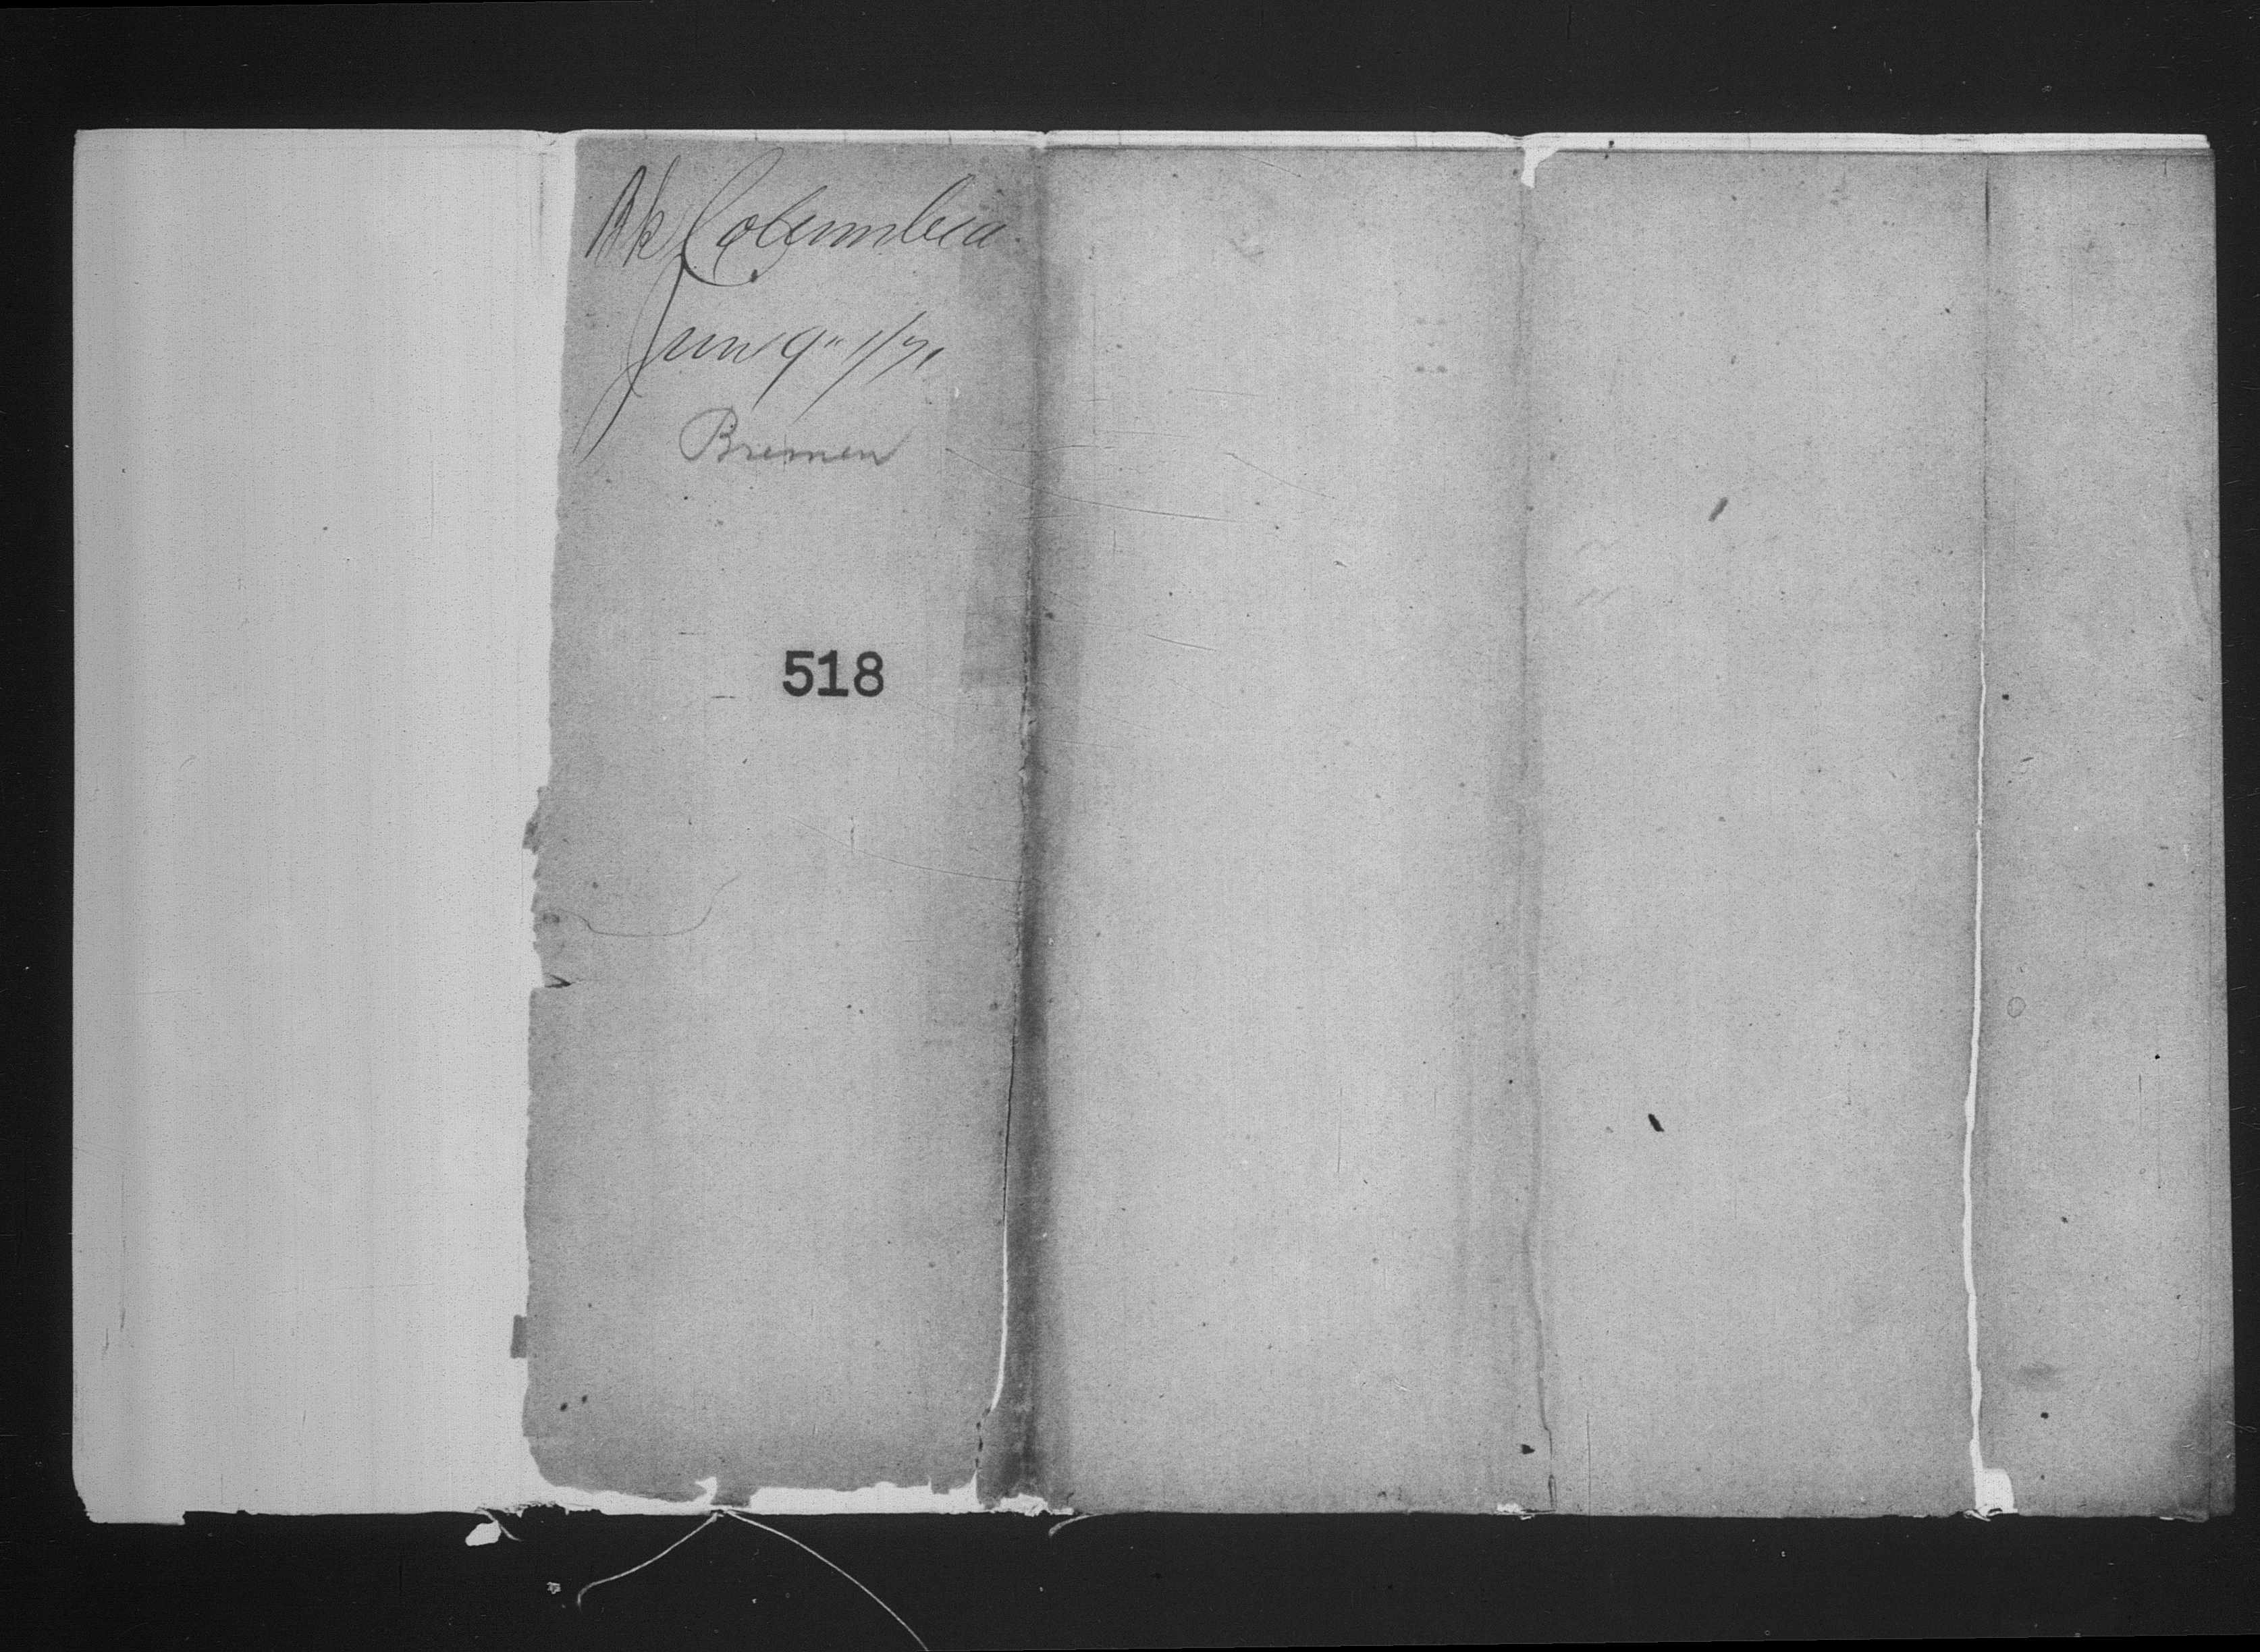 Bk Columbia
Jun 9" 1/71
Bremen
518